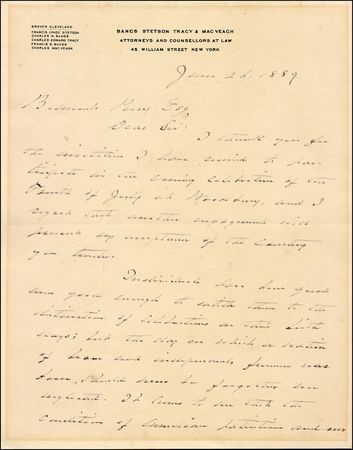 GROVER CLEVELAND
FRANCIS LYNDE STETSON
CHARLES W. BANGS
CHARLES EDWARD TRACY
FRANCIS S. BANGS
CHARLES MACVEAGH
BANGS STETSON TRACY & MACVEAGH
ATTORNEYS AND COUNSELLORS AT LAW
45 WILLIAM STREET NEW YORK
June 26. 1889
Belmont Perry Esq
Dear Sir:
I thank you for
the invitation I have received to par-
ticipate in the coming celebration of the
Fourth of July at Woodbury, and I
regret that another engagement will
prevent my acceptance of the courtesy
you tender.
Individuals have been good
and great enough to entitle them to the
distinction of celebrations on their birth
days; but the day on which a nation
of brave and independent freemen was
born, should never be forgotten nor
neglected. It seems to me that the
condition of American patriotism and our